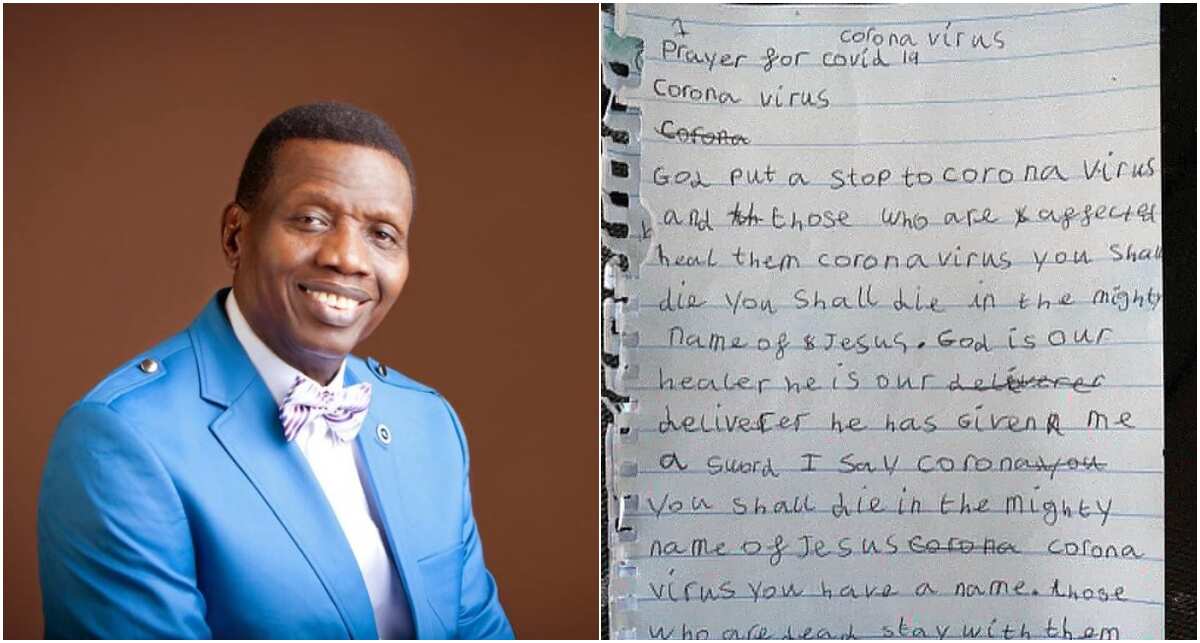 corona virus
Prayer for covid 19
Corona virus
Corona
God put a stop to corona virus
and th those who are affected
heal them corona virus you shall
die you shall die in the mighty
name of Jesus. God is our
healer he is our deliverer
deliverer he has given me
a sword I say corona you
you shall die in the mighty
name of Jesus corona corona
virus you have a name. those
who are dead stay with them